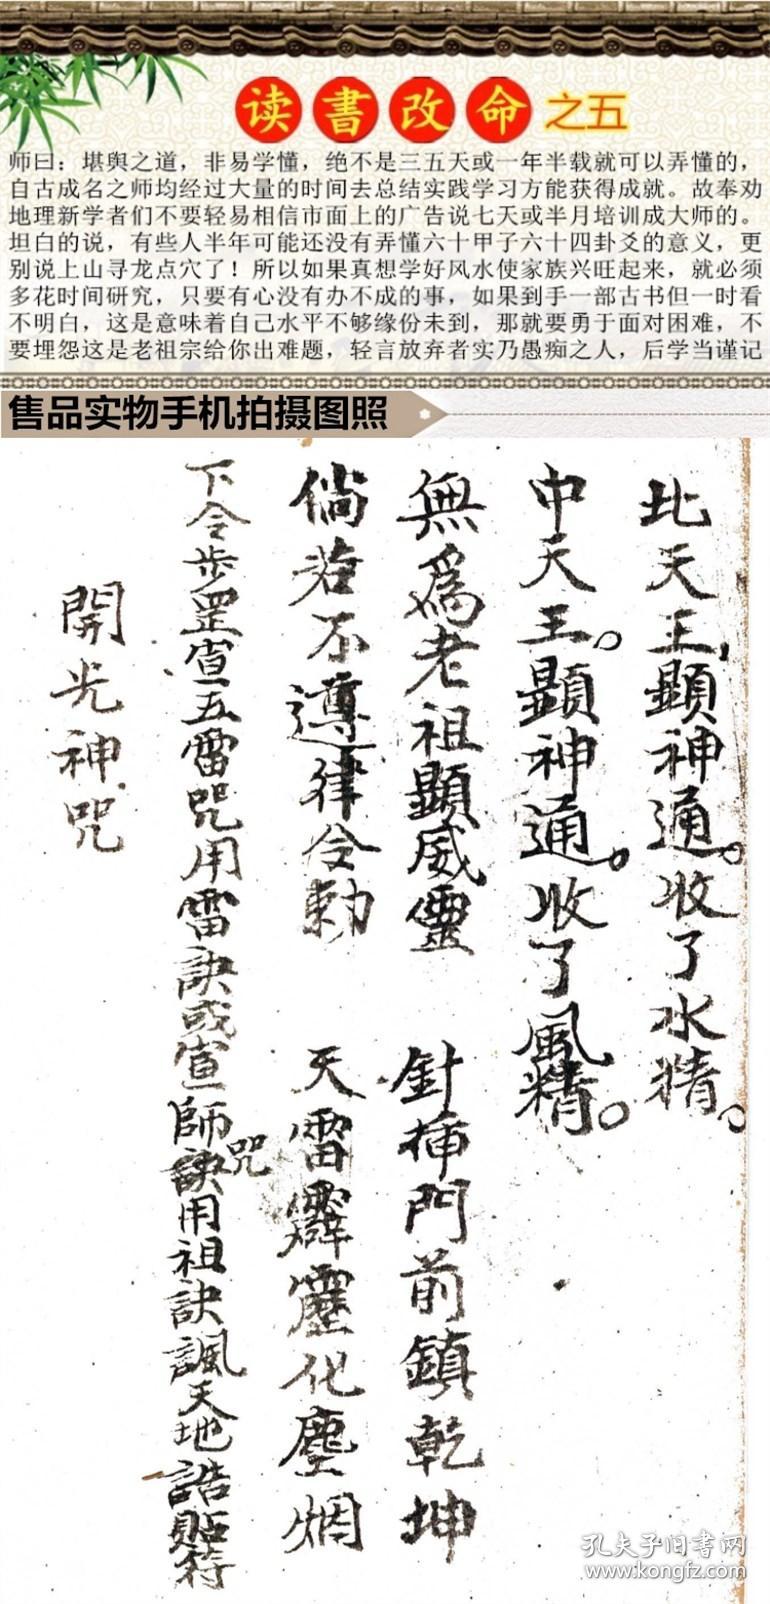 读書改命之五
师曰：堪舆之道，非易学懂，绝不是三五天或一年半载就可以弄懂的，
自古成名之师均经过大量的时间去总结实践学习方能获得成就。故奉劝
地理新学者们不要轻易相信市面上的广告说七天或半月培训成大师的。
坦白的说，有些人半年可能还没有弄懂六十甲子六十四卦爻的意义，更
别说上山寻龙点穴了！所以如果真想学好风水使家族兴旺起来，就必须
多花时间研究，只要有心没有办不成的事，如果到手一部古书但一时看
不明白，这是意味着自己水平不够缘份未到，那就要勇于面对困难，不
要埋怨这是老祖宗给你出难题，轻言放弃者实乃愚痴之人，后学当谨记
售品实物手机拍摄图照
北天王顯神通。收了水精。
中天王。顯神通。收了風精。
無為老祖顕威靈 針揷門前鎮乾坤
倘若不遵律令勅 天雷霹靂化塵烟
下令步罡宣五雷咒用雷訣或宣師咒訣用祖訣諷天地誥貼符
開光神咒
孔夫子旧書网
www.kongfz.com